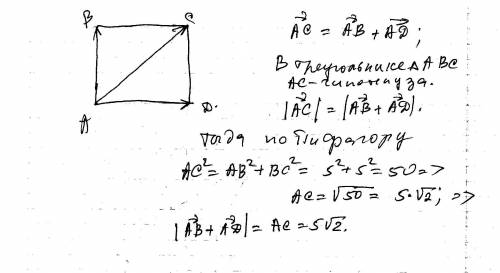 B C
A D.
AC = AB + AD ;
В треугольнике Δ ABC
AC - гипотенуза.
|AC| = |AB + AD|.
тогда по Пифагору
AC² = AB² + BC² = 5² + 5² = 50 =>
AC = √50 = 5·√2; =>
|AB + AD| = AC = 5√2.